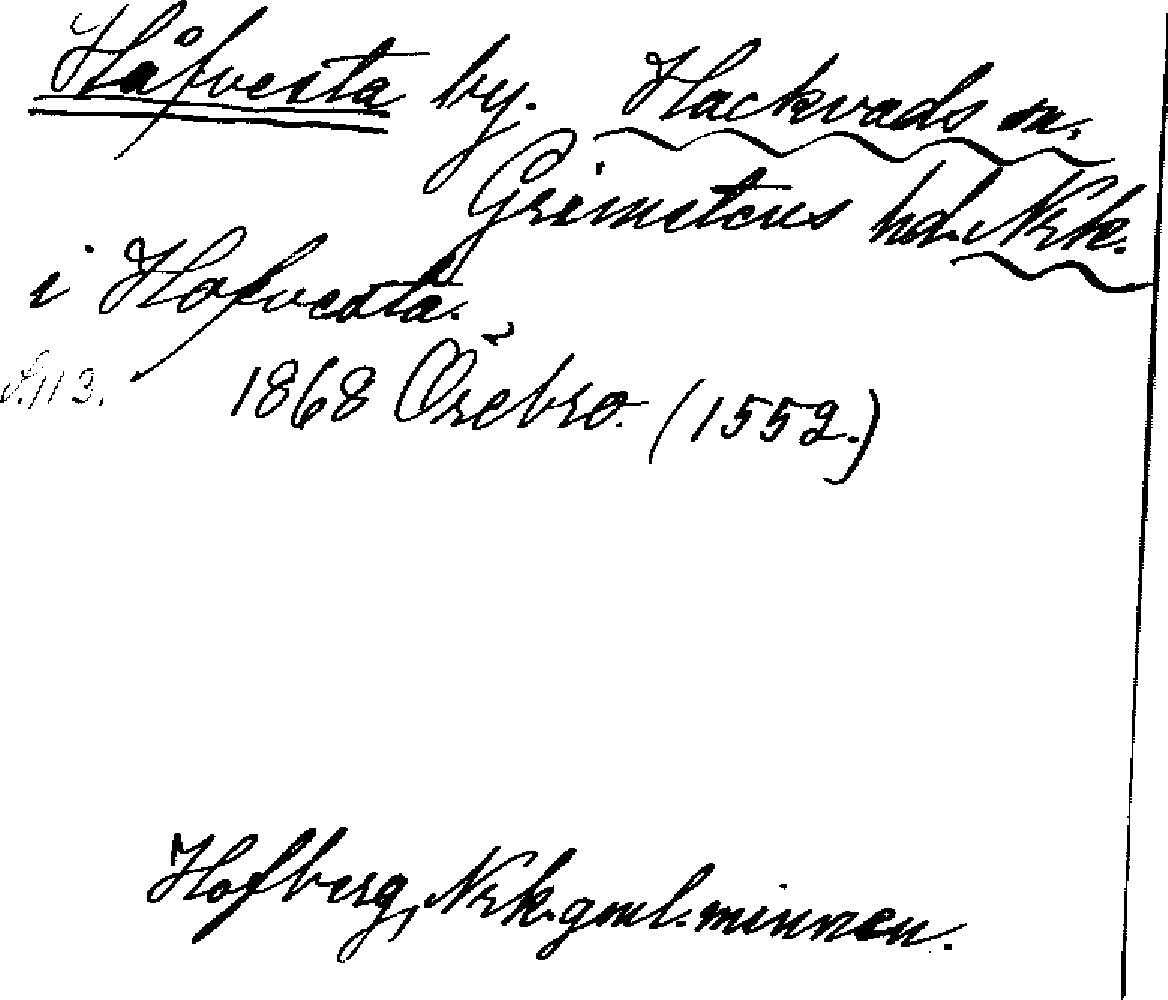 Håfvesta by. Hackvads sn.
Grimstens hd. Nrk.
i Hofvesta.
S. 113. 1868 Örebro. (1552.)
Hofberg, Nrk. gml. minnen.